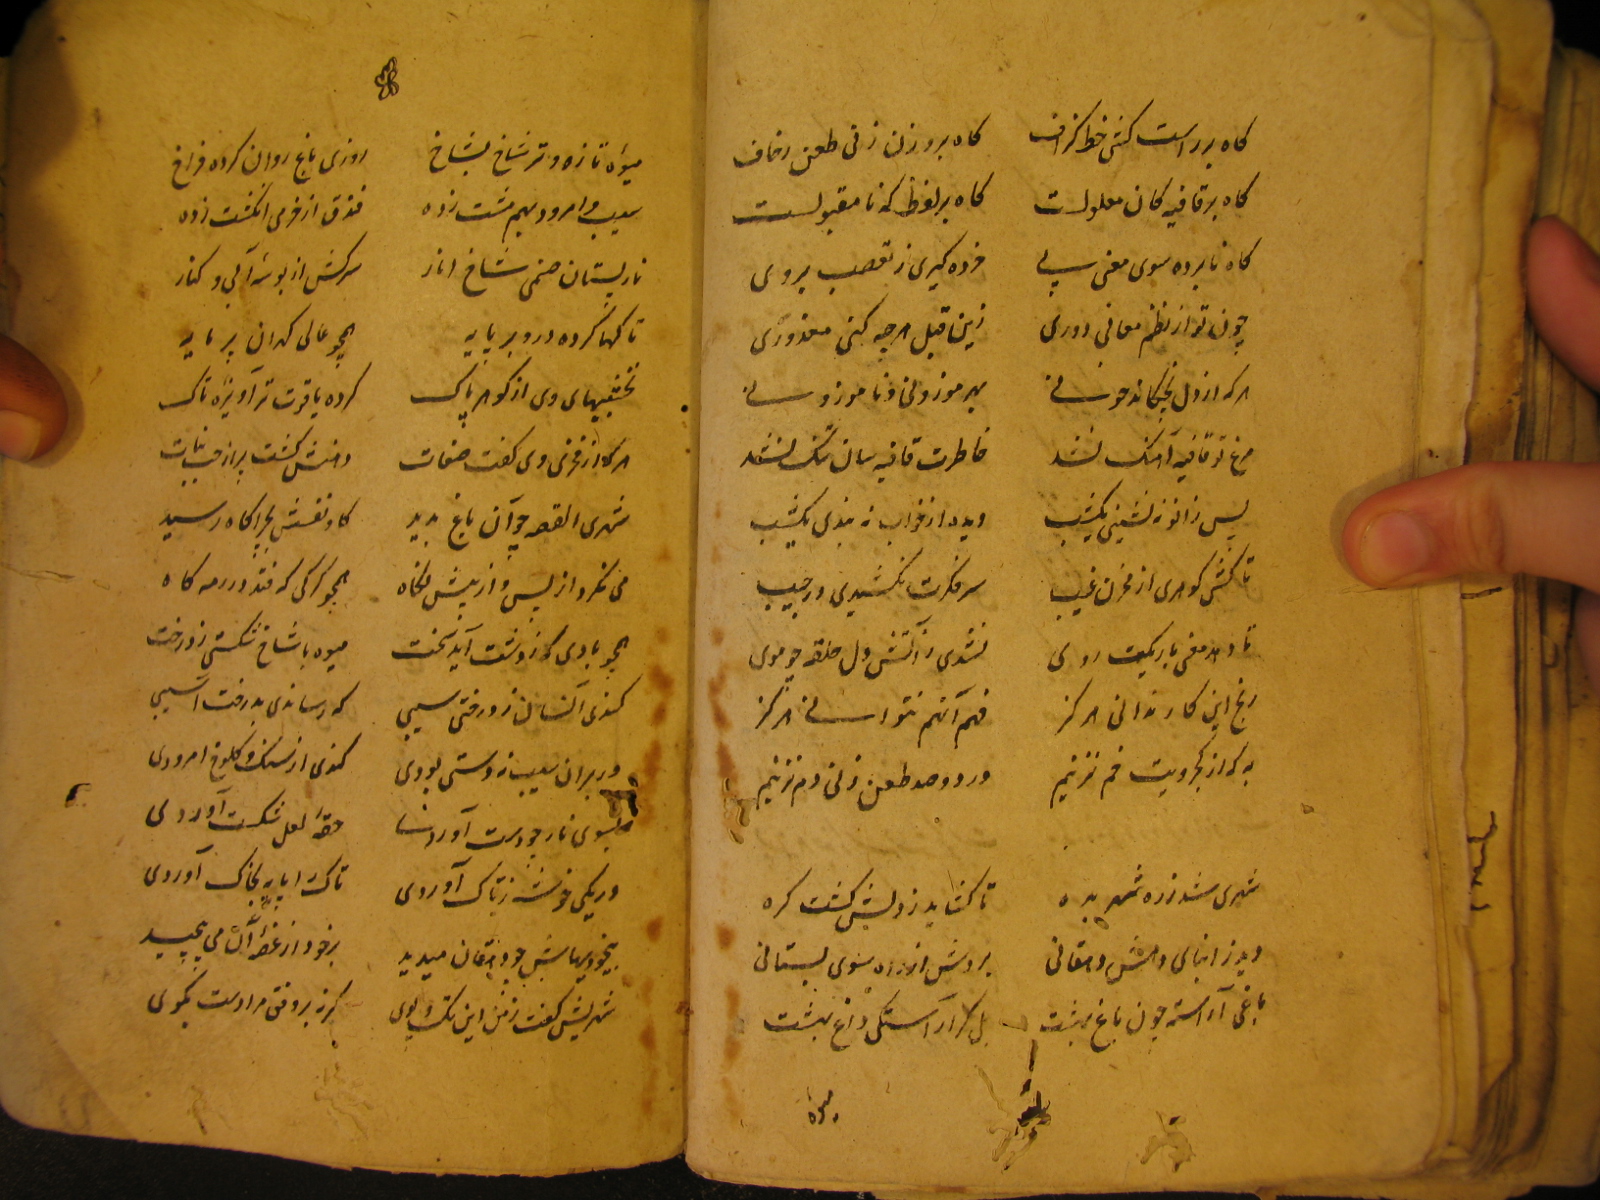 گاه بر راست کشی خط گزاف گاه بر وزن زنی طعن زحاف
گاه بر قافیه کان معلولست گاه بر لفظ که نامقبولست
گاه نابرده سوی معنی پی خرده گیری ز تعصب بر وی
چون تو از نظم معانی دوری زین قبل هرچه کنی معذوری
هر که از دل نچکاند خونی بهر موزونی و ناموزونی
مرغ تو قافیه آهنگ نشد خاطرت قافیه سان تنگ نشد
پس زانو ننشینی یکشب دیده از خواب نه بندی یکشب
تا کشی گوهری از مخزن غیب سر فکرت نکشیدی در جیب
تا دهد معنی باریکت روی نشدی ز آتش دل حلقه چو موی
رنج این کار ندانی هرگز فهم آنهم نتوانی هرگز
به که از کجرویت خم نزنیم ور دو صد طعن زنی دم نزنیم
شهری شد ز ده شهر بده تا گشاید ز دلش گشت گره
دید ز ابنای دهش دهقانی بردش از راه بسوی بستانی
باغی آراسته چون باغ بهشت بل کز آراستگی داغ بهشت
میوه
میوهٔ تازه و تر شاخ بشاخ روزی باغ روان کرده فراخ
سیب و امرود بهم مشت زده فندق از خرمی انگشت زده
نارپستان صنمی شاخ انار سرکش از بوسهٔ آبی و کنار
تاکها کرده درو بر پایه همچو عالی گهران پر مایه
تخته‌بهای وی از گوهر پاک کرده یاقوت تر آویزه تاک
هر که از خرمی وی گفت صفات دهنش گشت پر از حب نبات
شهری القصه چو آن باغ بدید گاو نفسش بچراگاه رسید
می نکرد از پس و از پیش نگاه همچو گرگی که فتد در رمه گاه
همچو بادی که ز دشت آید سخت میوه با شاخ شکستی ز درخت
کندی آنسان ز درختی سیبی که رساندی بدرخت آسیبی
ور بران سیب نه دستی بودی کندی از سنگ و کلوخ امرودی
بسوی نار چو دست آوردی حقهٔ لعل شکست آوردی
ور یکی خوشه ز تاک آوردی تاک را پایه بخاک آوردی
بیخودیهاش چو دهقان میدید بر خود از غصهٔ آن می پیچید
شهریش گفت ز من این تک و پوی گر نه بر وفق مرادست بگوی